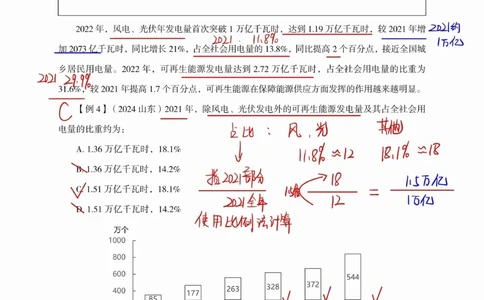 2022 年，风电、光伏年发电量首次突破 1 万亿千瓦时，达到 1.19 万亿千瓦时，较 2021 年增
2021约
1万亿
2021：11.8%
加 2073 亿千瓦时，同比增长 21%，占全社会用电量的 13.8%，同比提高 2 个百分点，接近全国城
乡居民用电量。2022 年，可再生能源发电量达到 2.72 万亿千瓦时，占全社会用电量的比重为
2021 29.9%
31.6%，较 2021 年提高 1.7 个百分点，可再生能源在保障能源供应方面发挥的作用越来越明显。
C 【例 4】（2024 山东）2021 年，除风电、光伏发电外的可再生能源发电量及其占全社会用
电量的比重约为：
占比：风，光 其他
A. 1.36 万亿千瓦时，18.1%
11.8%≈12 18.1%≈18
B. 1.36 万亿千瓦时，14.2%
指2021部分
2021全年
C. 1.51 万亿千瓦时，18.1%
15倍 18
12
=
1.5万亿
1万亿
D. 1.51 万亿千瓦时，14.2%
使用比例法计算
万个
1000
800
600
400
85
177
263
328
372
544